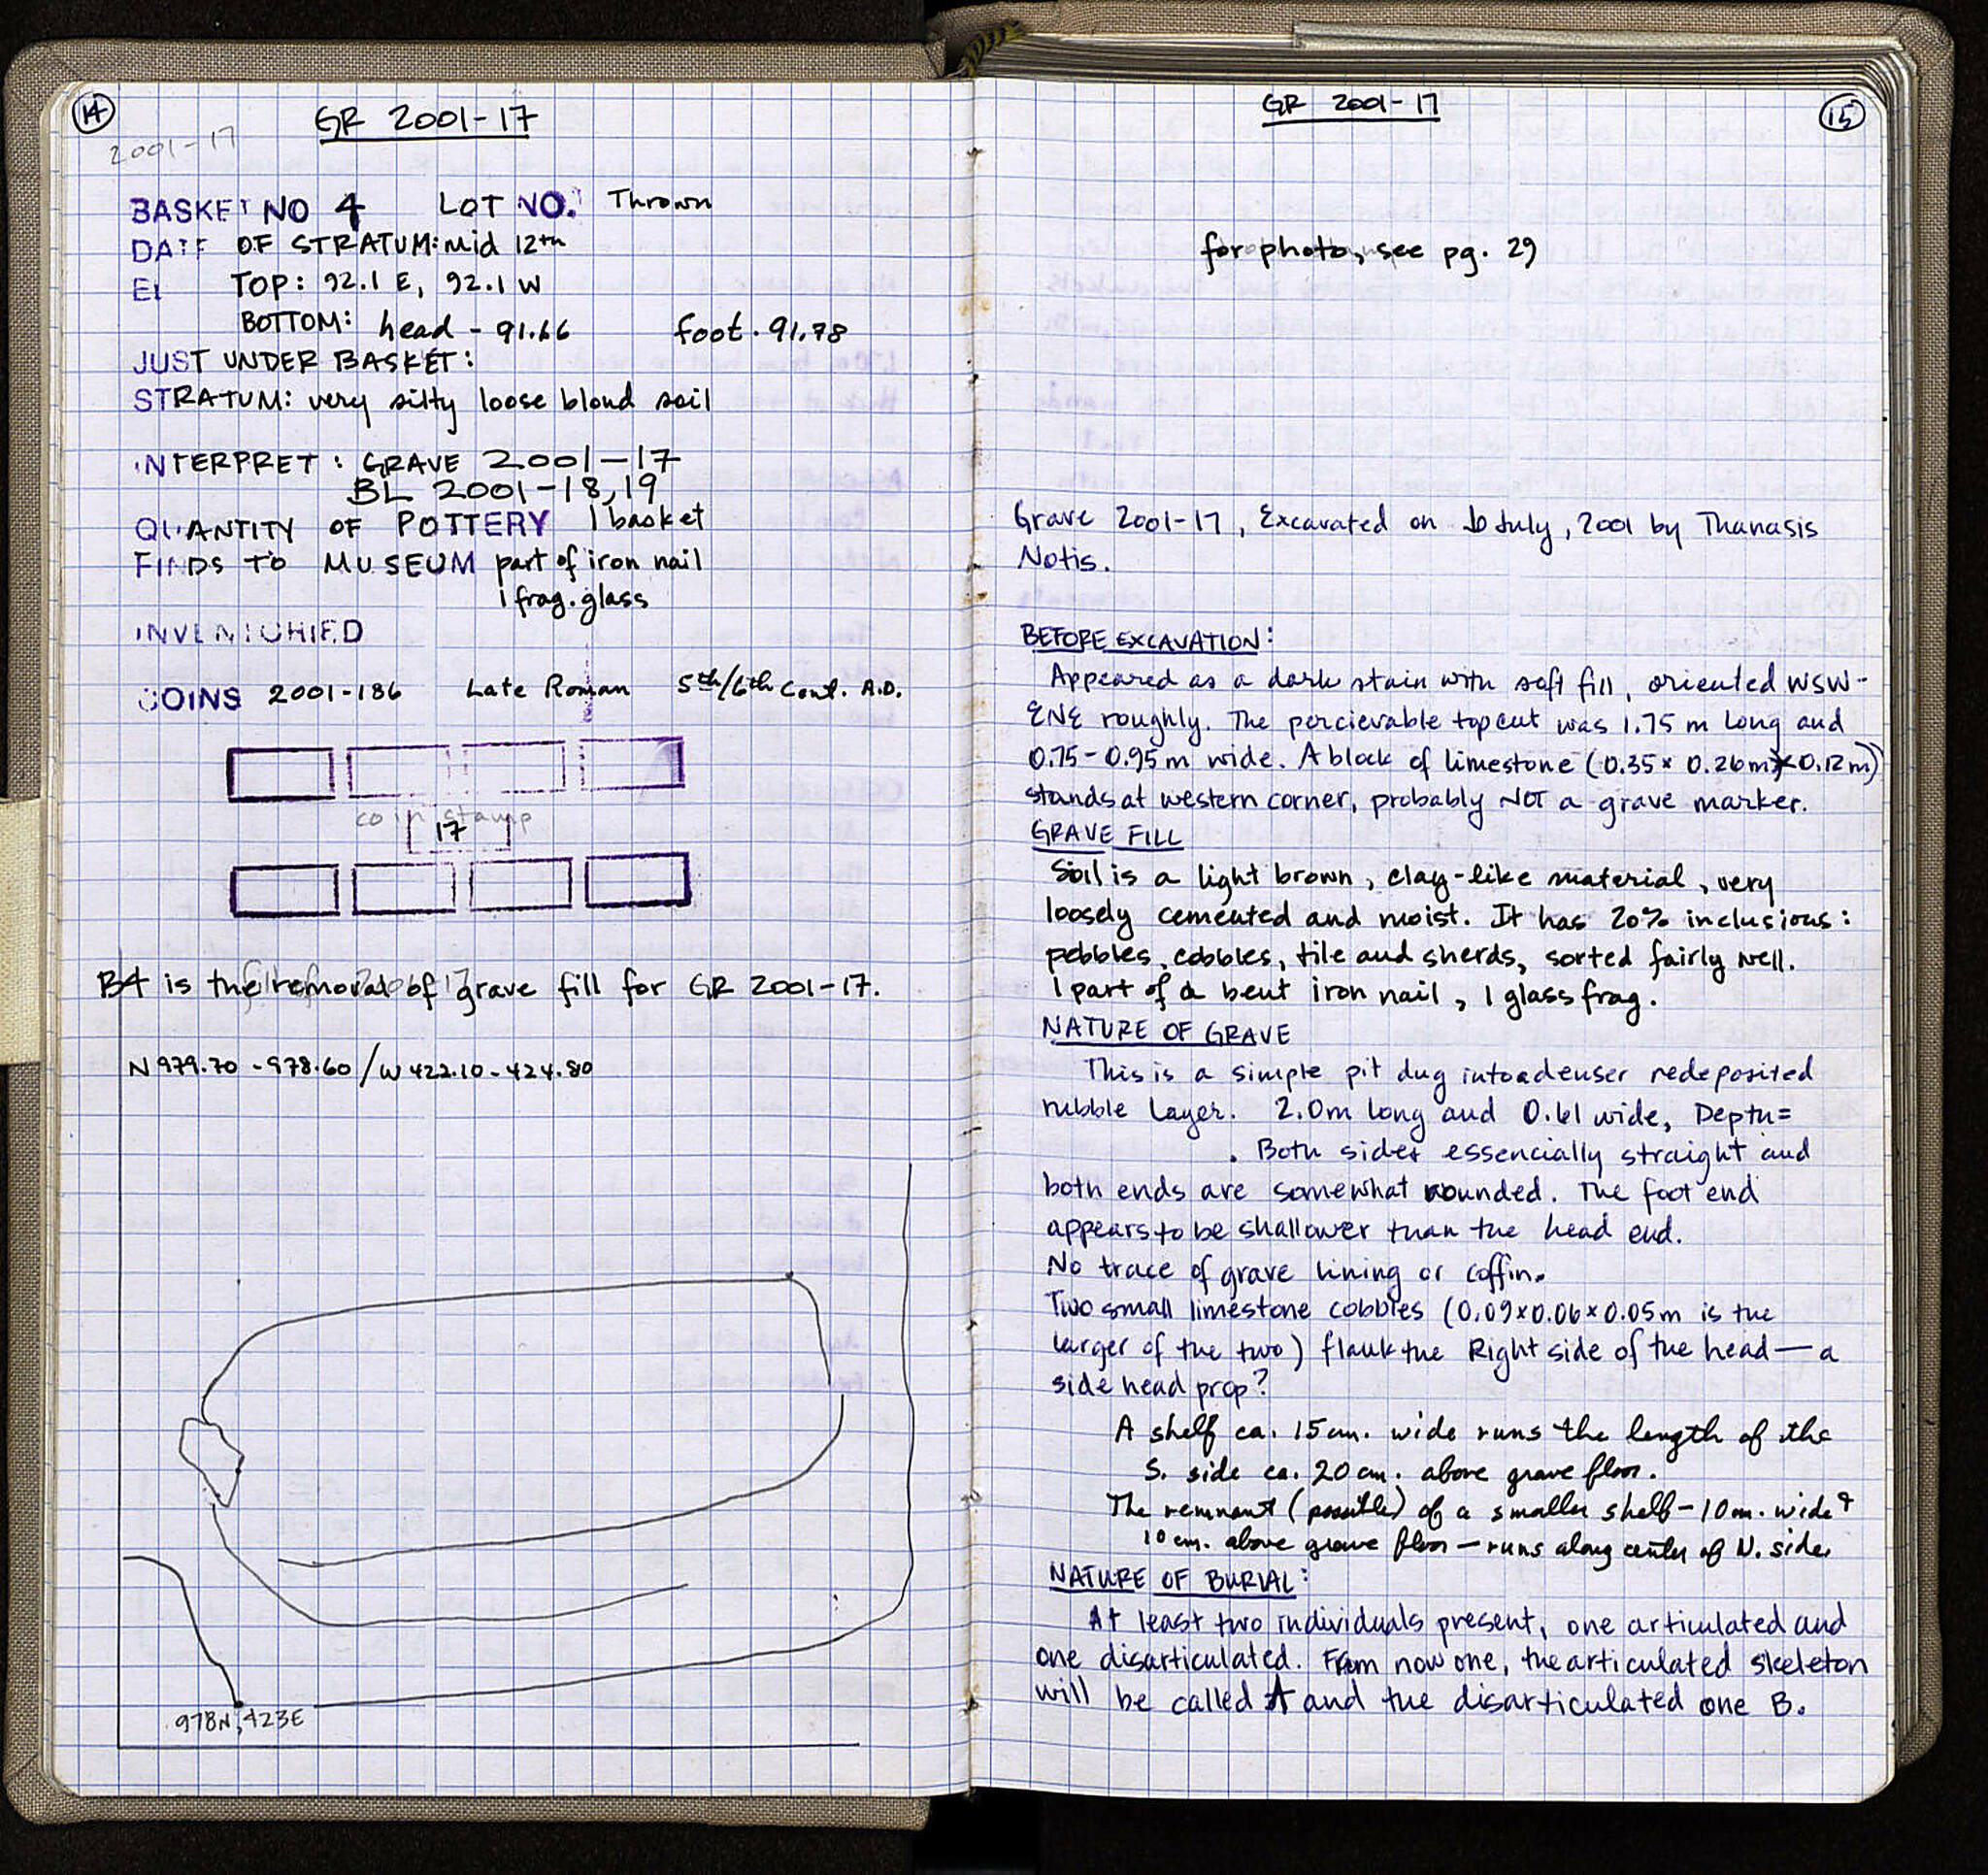 14
GR 2001-17
2001-17
BASKET NO 4 LOT NO. Thrown
DATE OF STRATUM: mid 12th
El TOP: 92.1 E, 92.1 W
BOTTOM: head - 91.66 foot. 91.78
JUST UNDER BASKET:
STRATUM: very silty loose blond soil
INTERPRET: GRAVE 2001-17
BL 2001-18,19
QUANTITY OF POTTERY 1 basket
FINDS TO MUSEUM part of iron nail
1 frag. glass
INVENTORIED
COINS 2001-186 Late Roman 5th/6th cent. A.D.
coin stamp
17
B4 is the removal of grave fill for GR 2001-17.
N 979.70 - 978.60 / W 422.10 - 424.80
978N, 423E
GR 2001-17
15
for photo, see pg. 29
Grave 2001-17, Excavated on July, 2001 by Thanasis
Notis.
BEFORE EXCAVATION:
Appeared as a dark stain with soft fill, oriented WSW-
ENE roughly. The percievable top cut was 1.75 m long and
0.75-0.95 m wide. A block of limestone (0.35 x 0.26m x 0.12m)
stands at western corner, probably NOT a grave marker.
GRAVE FILL
Soil is a light brown, clay-like material, very
loosely cemented and moist. It has 20% inclusions:
pebbles, cobbles, tile and sherds, sorted fairly well.
1 part of a bent iron nail, 1 glass frag.
NATURE OF GRAVE
This is a simple pit dug into a denser redeposited
rubble layer. 2.0m long and 0.61 wide, Depth=
. Both sides essencially straight and
both ends are somewhat rounded. The foot end
appears to be shallower than the head end.
No trace of grave lining or coffin.
Two small limestone cobbles (0.09 x 0.06 x 0.05m is the
larger of the two) flank the Right side of the head — a
side head prop?
A shelf ca. 15 cm. wide runs the length of the
S. side ca. 20 cm. above grave floor.
The remnant (possible) of a smaller shelf - 10 cm. wide &
10 cm. above grave floor - runs along center of N. side.
NATURE OF BURIAL:
At least two individuals present, one articulated and
one disarticulated. From now one, the articulated skeleton
will be called A and the disarticulated one B.